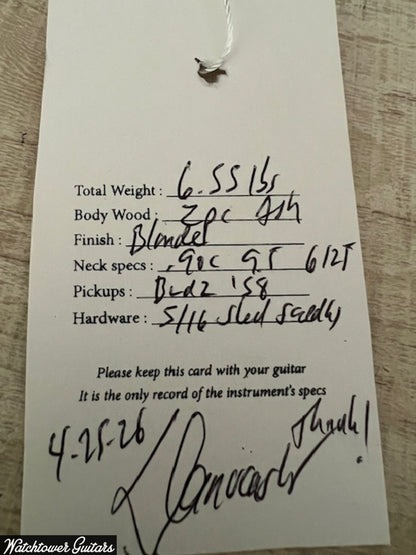 Total Weight : 6.55 lbs
Body Wood : 2pc Ash
Finish : Blonde
Neck specs : .90c 9.5 6125
Pickups : Bud2 '58
Hardware : 5/16 steel saddles
Please keep this card with your guitar
It is the only record of the instrument's specs
4-25-26
Thank!
Watchtower Guitars